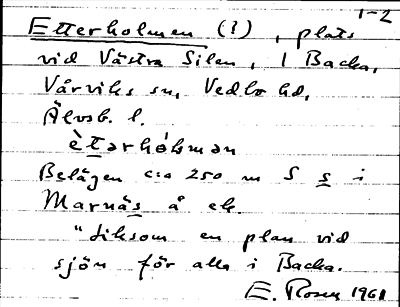 1-2
Etterholmen (?), plats
vid Västra Silen, 1 Backa,
Vårviks sn, Vedbo hd,
Älvsb. l.
ètərhóĺmən
Belägen c:a 250 m S s i
Marnäs å ek.
"liksom en plan vid
sjön för alla i Backa.
E. Rosen 1961